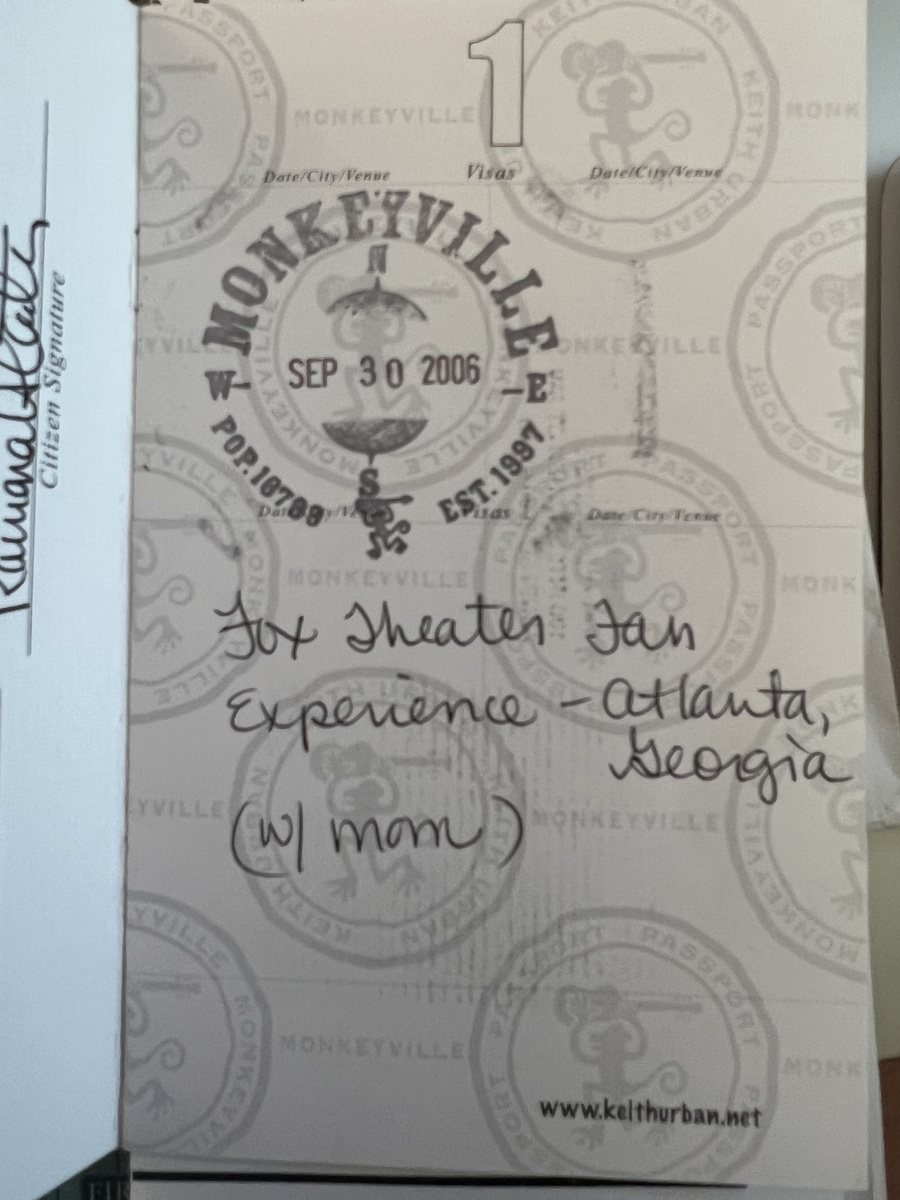 1
Date/City/Venue Visas Date/City/Venue
MONKEYVILLE
N
SEP 30 2006
W- -E
S
POP. 16799 EST. 1997
Date/City/Venue Visas Date/City/Venue
Fox Theater Fan
Experience - Atlanta,
Georgia
(w/ mom)
www.keithurban.net
Citizen Signature
MONKEYVILLE
KEITH URBAN
PASSPORT